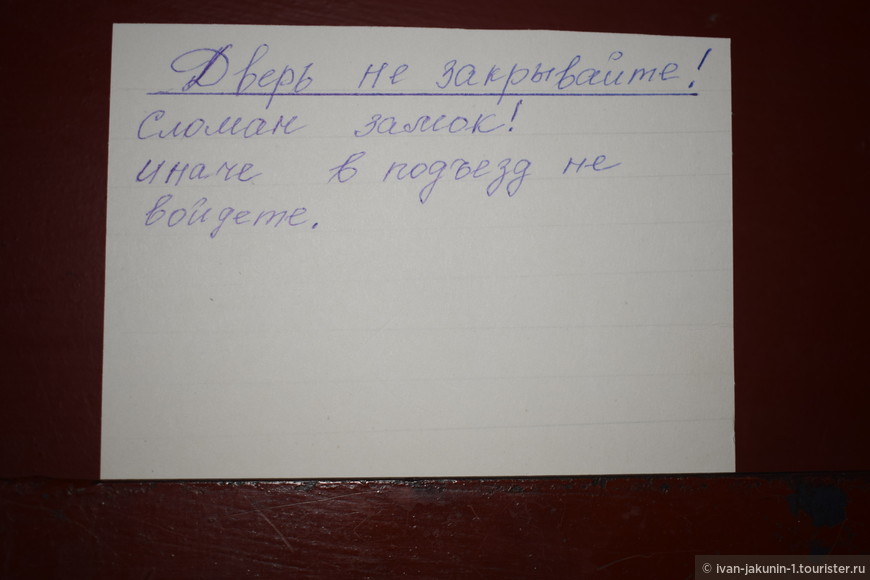 Дверь не закрывайте!
Сломан замок!
Иначе в подъезд не
войдете.
© ivan-jakunin-1.tourister.ru